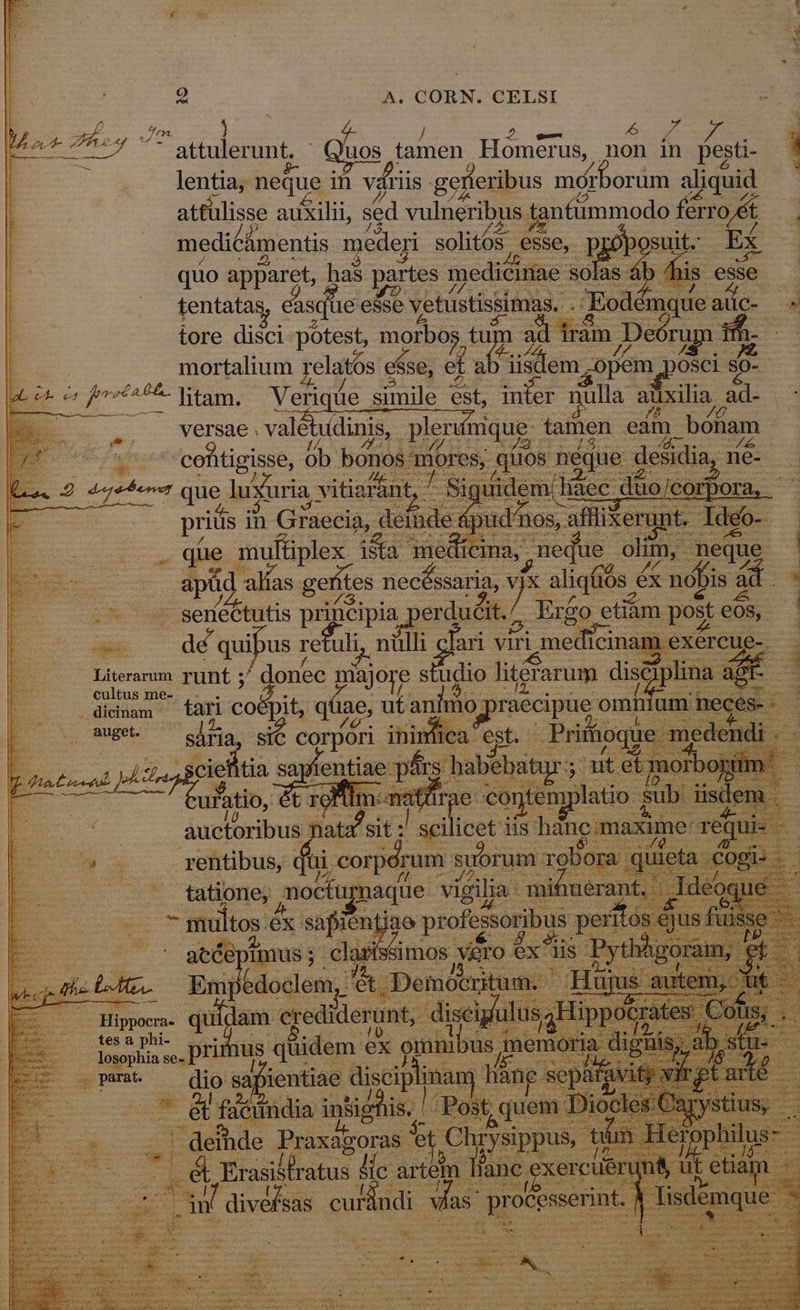 2 A. CORN. CELSI
that they
attulerunt. Quos tamen Homerus, non in pesti-
lentia, neque in variis generibus morborum aliquid
attulisse auxilii, sed vulneribus tantummodo ferro et
medicamentis mederi solitos esse, proposuit. Ex
quo apparet, has partes medicinae solas ab his esse
tentatas, easque esse vetustissimas. Eodemque auc-
tore disci potest, morbos tum ad iram Deorum im-
mortalium relatos esse, et ab iisdem opem posci so-
it is probable
litam. Verique simile est, inter nulla auxilia ad-
versae valetudinis, plerumique tamen eam bonam
contigisse, ob bonos mores, quos neque desidia, ne-
que luxuria vitiarant. Siquidem haec duo corpora,
prius in Graecia, deinde apud nos, afflixerunt. Ideo-
que multiplex ista medicina, neque olim, neque
apud alias gentes necessaria, vix aliquos ex nobis ad
senectutis principia perducit. Ergo etiam post eos,
de quibus retuli, nulli clari viri medicinam exercue-
runt; donec majore studio literarum disciplina agi-
Literarum
cultus me-
dicinam
auget.
tari coepit, quae, ut animo praecipue omnium neces-
saria, sic corpori inimica est. Primoque medendi
scientia sapientiae pars habebatur; ut et morborum
curatio, et rerum naturae contemplatio sub iisdem
auctoribus nata sit: scilicet iis hanc maxime requi-
rentibus, qui corporum suorum robora quieta cogi-
tatione, nocturnaque vigilia minuerant. Ideoque
multos ex sapientiae professoribus peritos ejus fuisse
accepimus; clarissimos vero ex iis Pythagoram, et
the latter
Empedoclem, et Democritum. Hujus autem, ut
Hippocra-
tes a phi-
losophia se-
parat.
quidam crediderunt, discipulus, Hippocrates Cous,
primus quidem ex omnibus memoria dignis, ab stu-
dio sapientiae disciplinam hanc separavit, vir et arte
et facundia insignis. Post quem Diocles Carystius,
deinde Praxagoras et Chrysippus, tum Herophilus
et Erasistratus sic artem hanc exercuerunt, ut etiam
in diversas curandi vias processerint. Iisdemque